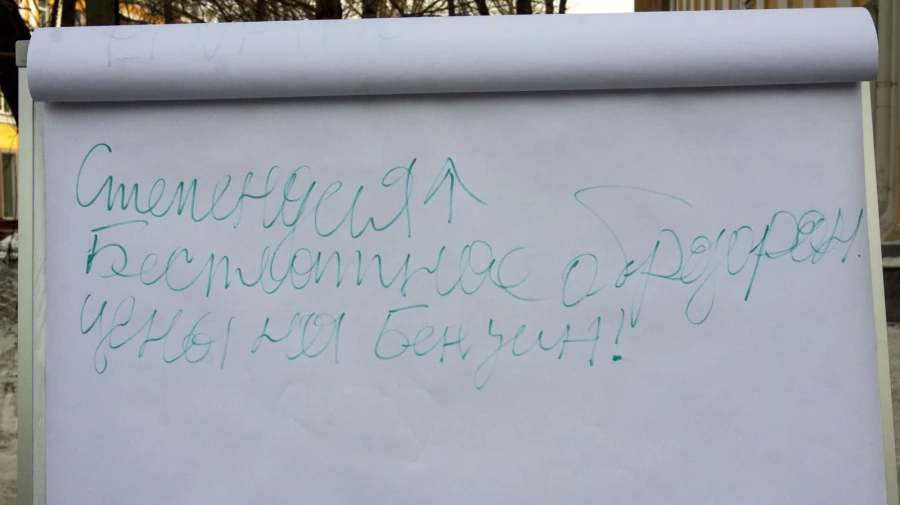 Степендия↑
Бесплатное
цены на Бензин!